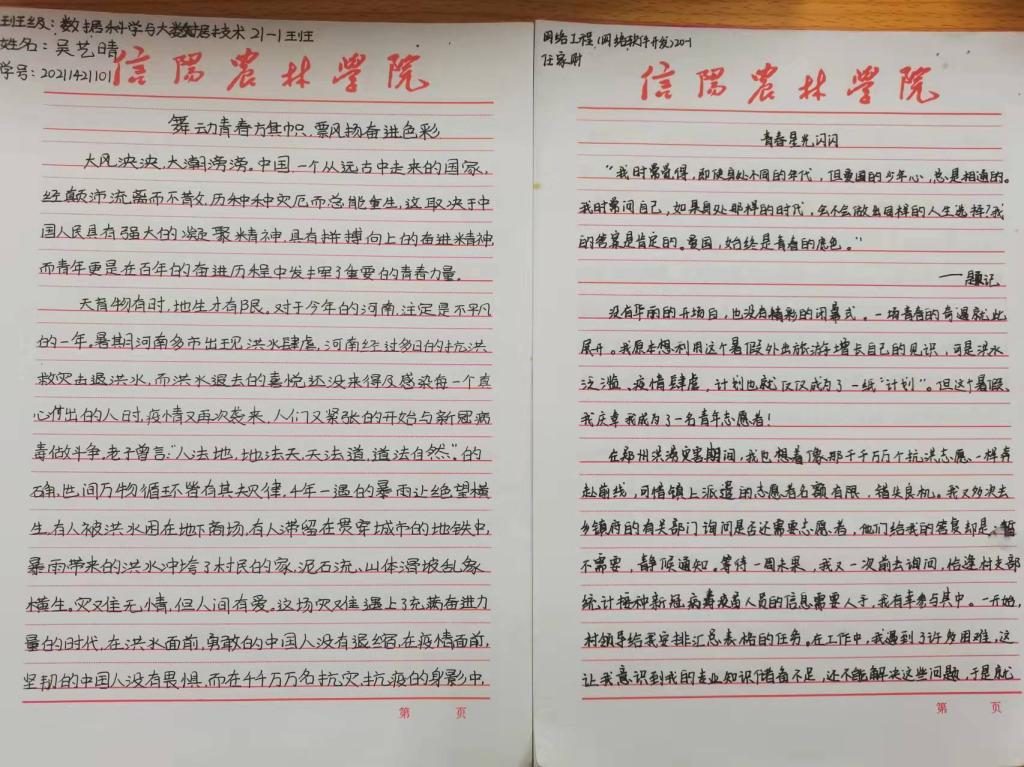 班级：数据科学与大数据技术 21-1班
姓名：吴艺晴
学号：2021421101
信阳农林学院
舞动青春方旗帜，飘风扬奋进色彩
大风泱泱，大潮滂滂。中国，一个从远古中走来的国家，
经颠沛流离而不散，历种种灾厄而总能重生，这取决于中
国人民具有强大的凝聚精神，具有拼搏向上的奋进精神，
而青年更是在百年的奋进历程中发挥了重要的青春力量。
天育物有时，地生才有限。对于今年的河南，注定是不平凡
的一年。暑期河南多市出现洪水肆虐，河南经过多日的抗洪
救灾击退洪水，而洪水退去的喜悦还没来得及感染每一个真
心付出的人时，疫情又再次袭来，人们又紧张的开始与新冠病
毒做斗争，老子曾言："人法地，地法天，天法道，道法自然"。的
确，世间万物循环皆有其规律，千年一遇的暴雨让绝望横
生。有人被洪水困在地下商场，有人滞留在贯穿城市的地铁中，
暴雨带来的洪水冲垮了村民的家，泥石流、山体滑坡乱象
横生。灾难无情，但人间有爱。这场灾难遇上了充满奋进力
量的时代，在洪水面前，勇敢的中国人没有退缩，在疫情面前，
坚韧的中国人没有畏惧，而在千千万万名抗灾、抗疫的身影中，
第 页
网络工程（网络软件开发）20-1
任家尉
信阳农林学院
青春星光闪闪
"我时常觉得，即使身处不同的年代，但爱国的少年心，总是相通的。
我时常问自己，如果身处那样的时代，会不会做出同样的人生选择？我
的答案是肯定的。爱国，始终是青春的底色。"
——题记
没有华丽的开场白，也没有精彩的闭幕式。一场青春的奇遇就此
展开。我原本想利用这个暑假外出旅游增长自己的见识，可是洪水
泛滥、疫情肆虐，计划也就仅仅成为了一纸"计划"。但这个暑假，
我庆幸我成为了一名青年志愿者！
在郑州洪涝灾害期间，我也想着像那千千万万个抗洪志愿一样奔
赴前线，可惜镇上派遣的志愿者名额有限，错失良机。我又多次去
乡镇府的有关部门询问是否还需要志愿者，他们给我的答复却是：暂
不需要，静候通知。等待一周未果，我又一次前去询问，恰逢村支部
统计接种新冠病毒疫苗人员的信息需要人手，我有幸参与其中。一开始，
村领导给我安排汇总表格的任务。在工作中，我遇到了许多困难，这
让我意识到我的专业知识储备不足，还不能解决这些问题，于是就
第 页